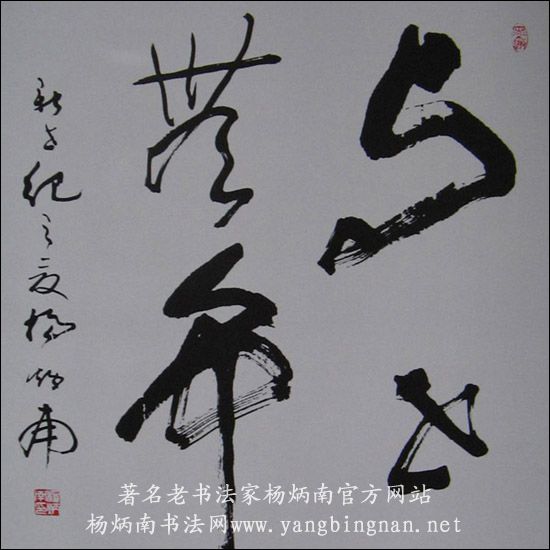 与世
無争
新世纪之夏楊炳南
著名老书法家杨炳南官方网站
杨炳南书法网www.yangbingnan.net